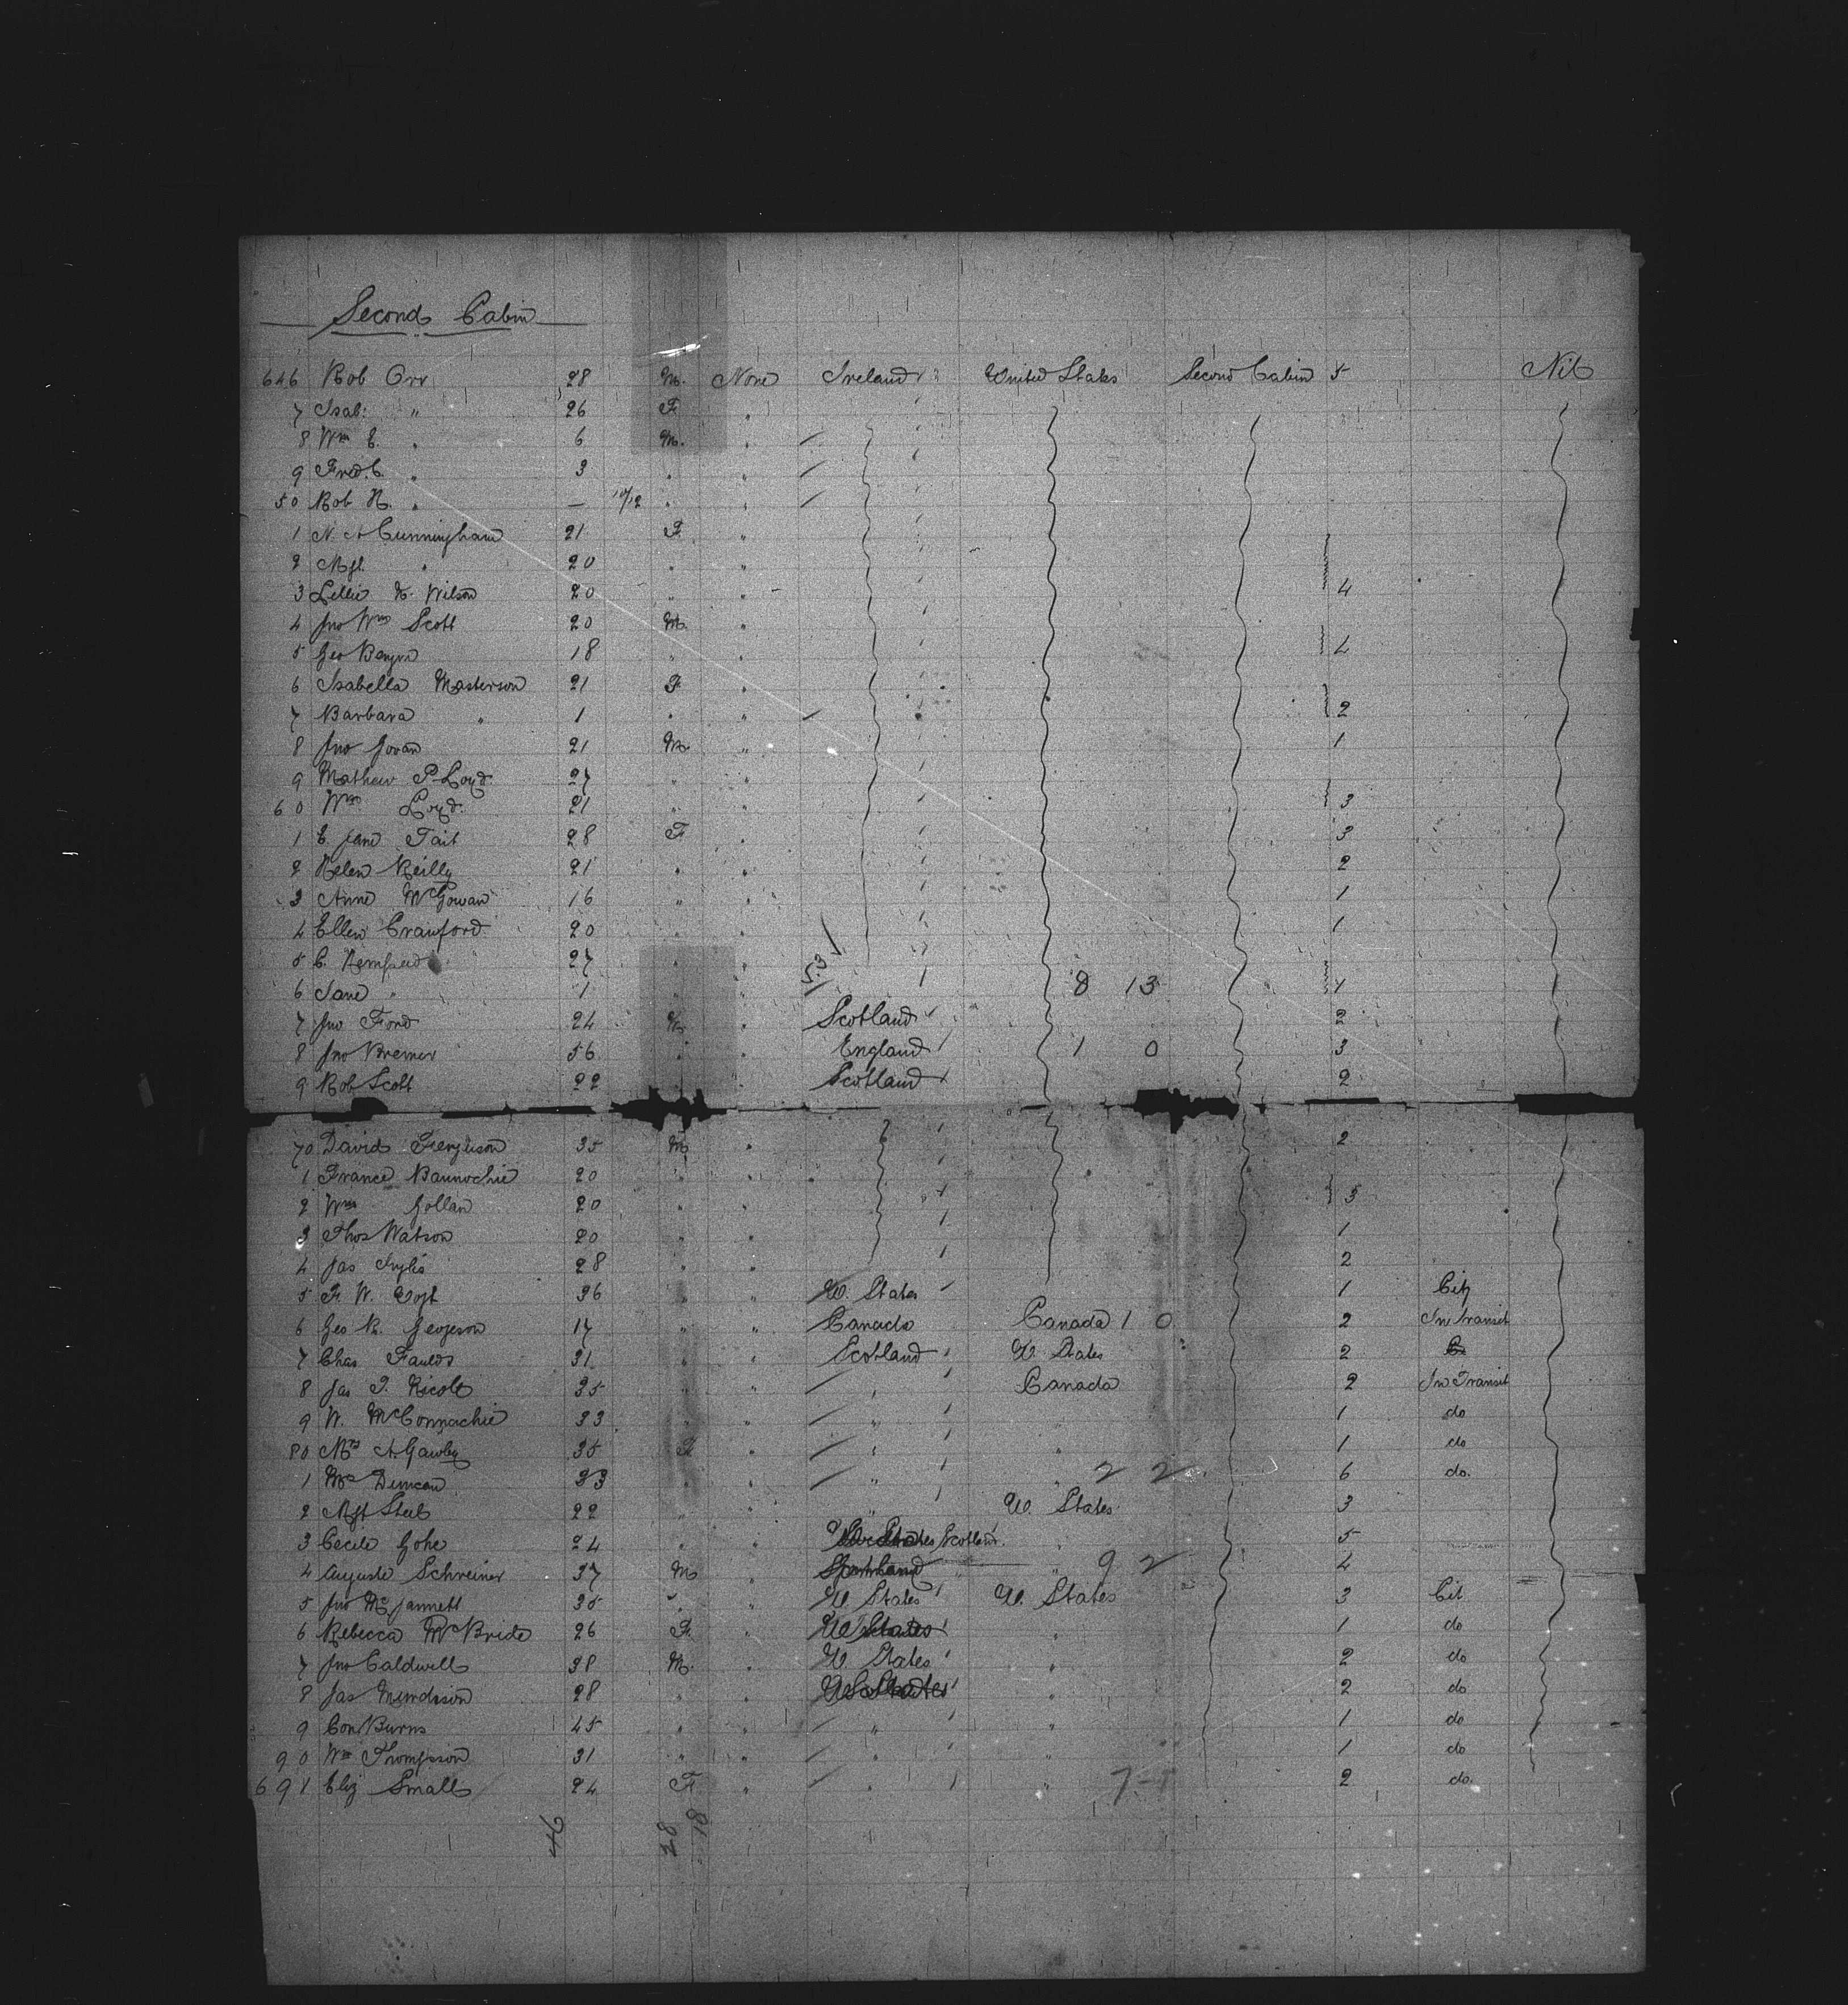 Second Cabin
646 Rob Orr 28 M. None Ireland United States Second Cabin 5 Nil
7 Isab: " 26 F "
8 Wm E. " 6 M. "
9 Fred. C. " 3 " "
50 Rob H. " — 10/12 " "
1 N. A Cunningham 21 F "
2 Mgt. " 20 " "
3 Lillie K. Wilson 20 " " 4
4 Jno Wm Scott 20 M "
5 Geo 18 " " 4
6 Isabella Masterson 21 F "
7 Barbara " 1 " " 2
8 Jno Govan 21 M " 1
9 Mathew P. Loyd. 27 " "
60 Wm Loyd. 21 " " 3
1 E Jane Tait 28 F " 3
2 Helen Reilly 21 " " 2
3 Anne McGowan 16 " " 1
4 Ellen Crawford 20 " " 1
5 C. 27 " "
6 Jane " 1 " " 53 8 13 1
7 Jno Ford 24 M " Scotland 2
8 Jno Bremer 56 " " England 1 0 3
9 Rob Scott 22 " Scotland 2
70 David Ferguson 35 M " 2
1 France Bannochie 20 " "
2 Wm Gollan 20 " " 5
3 Thos Watson 20 " " 1
4 Jas Inglis 28 " " 2
5 F. W. 36 " " U. States 1 Citz
6 Geo R. Geogeson 17 " " Canada Canada 1 0 2 In Transit
7 Chas Faulds 31 " " Scotland U. States 2
8 Jas P. Nicoll 35 " " " Canada 2 In Transit
9 W. McConnachie 33 " " " " 1 do
80 Mrs A. Gawley 35 F " " " 1 do
1 Mrs Duncan 33 " " " " 2 2 6 do.
2 Mgt Steel 22 " " U. States 3
3 Cecile Gohe 24 " " Scotland " 5
4 Auguste Schreiner 37 M " " " 9 2 4
5 Jno Mc Jannett 35 " " U. States U. States 3 Cit
6 Rebecca McBride 26 F. " U States " 1 do
7 Jno Caldwell 38 M. " U States " 2 do
8 Jas 28 " " " 2 do
9 Con Burns 45 " " " " 1 do
90 Wm Thompson 31 " " " " 1 do
691 Eliz Small 24 F " " " 2 do.
46 28 18